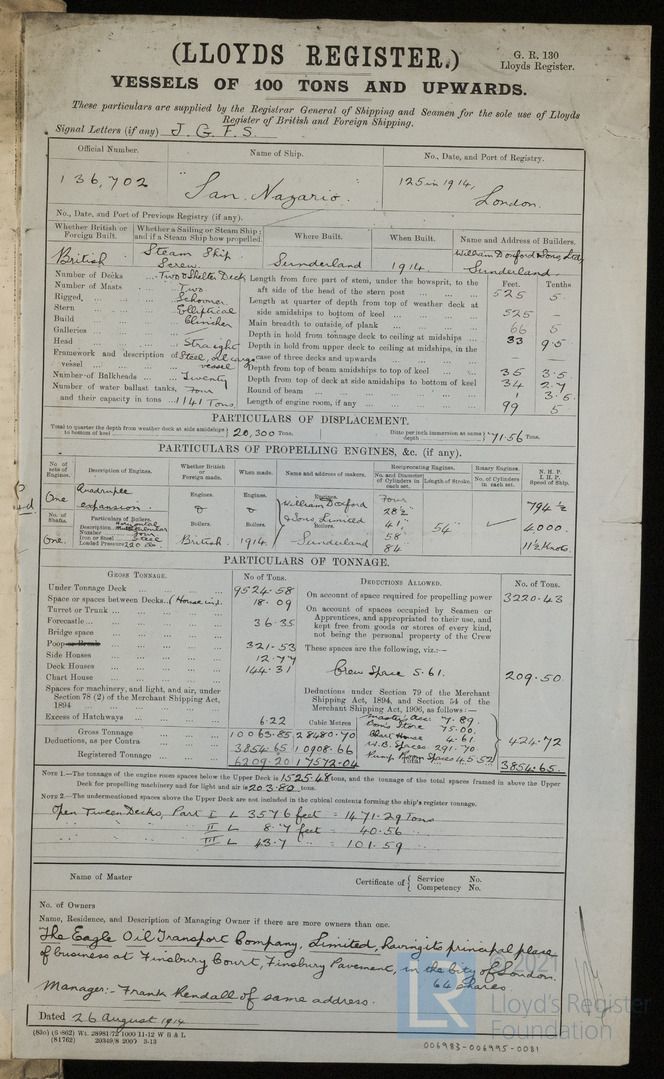 (LLOYDS REGISTER.)
G. R. 130
Lloyds Register.
VESSELS OF 100 TONS AND UPWARDS.
These particulars are supplied by the Registrar General of Shipping and Seamen for the sole use of Lloyds
Register of British and Foreign Shipping.
Signal Letters (if any) J. G. F. S.
Official Number. Name of Ship. No., Date, and Port of Registry.
136,702 "San Nazario." 125 in 1914, London.
No., Date, and Port of Previous Registry (if any).
Whether British or Foreign Built. Whether a Sailing or Steam Ship; and if a Steam Ship how propelled. Where Built. When Built. Name and Address of Builders.
British Steam Ship Screw Sunderland 1914 William Doxford & Sons, Ltd. Sunderland.
Number of Decks ... Two & Shelter Deck
Number of Masts ... Two
Rigged ... Schooner
Stern ... Elliptical
Build ... Clincher
Galleries ...
Head ... Straight
Framework and description of vessel ... Steel, vessel
Number of Bulkheads ... Twenty
Number of water ballast tanks, and their capacity in tons ... Four 1141 Tons
Feet. Tenths
Length from fore part of stem, under the bowsprit, to the aft side of the head of the stern post 525 5
Length at quarter of depth from top of weather deck at side amidships to bottom of keel 525 –
Main breadth to outside of plank 66 5
Depth in hold from tonnage deck to ceiling at midships 33 9·5
Depth in hold from upper deck to ceiling at midships, in the case of three decks and upwards — —
Depth from top of beam amidships to top of keel 35 3·5
Depth from top of deck at side amidships to bottom of keel 34 2·7
Round of beam 1 3·5
Length of engine room, if any 99 5
PARTICULARS OF DISPLACEMENT.
Total to quarter the depth from weather deck at side amidships to bottom of keel 20,300 Tons. Ditto per inch immersion at same depth 71·56 Tons.
PARTICULARS OF PROPELLING ENGINES, &c. (if any).
No. of sets of Engines. Description of Engines. Whether British or Foreign made. When made. Name and address of makers. Reciprocating Engines. No. and Diameter of Cylinders in each set. Length of Stroke. Rotary Engines. No. of Cylinders in each set. N. H. P. I. H. P. Speed of Ship.
One Quadruple expansion. Engines. Engines. Engines. William Doxford & Sons Limited Sunderland Four 28½" 41" 58" 84 54" 794½
4,000.
11½ Knots
No. of Shafts. One.
Particulars of Boilers.
Description Horizontal multitubular
Number Four
Iron or Steel Steel
Loaded Pressure 220 lbs.
Boilers. British Boilers. 1914 Boilers.
PARTICULARS OF TONNAGE.
GROSS TONNAGE. No. of Tons.
Under Tonnage Deck 9524·58
Space or spaces between Decks (House incl. 18·09
Turret or Trunk
Forecastle 36·35
Bridge space
Poop or Break 321·53
Side Houses 12·77
Deck Houses 144·31
Chart House
Spaces for machinery, and light, and air, under Section 78 (2) of the Merchant Shipping Act, 1894
Excess of Hatchways 6·22
Cubic Metres
Gross Tonnage 10063·85 28480·70
Deductions, as per Contra 3854·65 10908·66
Registered Tonnage 6209·20 17572·04
DEDUCTIONS ALLOWED. No. of Tons.
On account of space required for propelling power 3220·43
On account of spaces occupied by Seamen or Apprentices, and appropriated to their use, and kept free from goods or stores of every kind, not being the personal property of the Crew
These spaces are the following, viz:—
Crew Space 5.61. 209.50
Deductions under Section 79 of the Merchant Shipping Act, 1894, and Section 54 of the Merchant Shipping Act, 1906, as follows:—
Master's Acc: 7.89.
Bosn's Store 75.00.
Chart House 4.61.
W.B. Spaces 291.70.
Pump Room Spaces 45.52 424.72
Total 3854.65.
NOTE 1.—The tonnage of the engine room spaces below the Upper Deck is 1525·48 tons, and the tonnage of the total spaces framed in above the Upper
Deck for propelling machinery and for light and air is 203·80 tons.
NOTE 2.—The undermentioned spaces above the Upper Deck are not included in the cubical contents forming the ship's register tonnage.
Open Tween Decks, Part I L 357.6 feet = 1471.29 Tons
" II L 8.7 feet = 40.56
" III L 43.7 " = 101.59
Name of Master Certificate of { Service No. Competency No.
No. of Owners
Name, Residence, and Description of Managing Owner if there are more owners than one.
The Eagle Oil Transport Company, Limited, having its principal place
of business at Finsbury Court, Finsbury Pavement, in the City of London.
64 shares
Manager:- Frank Kendall of same address.
Dated 26 August 1914
(83o) (S·862) Wt. 28981/72 1000 11-12 W B & L
(81762) 20349/8 2000 3-13
© 2021
LR
Lloyd's Register
Foundation
006983-006995-0081